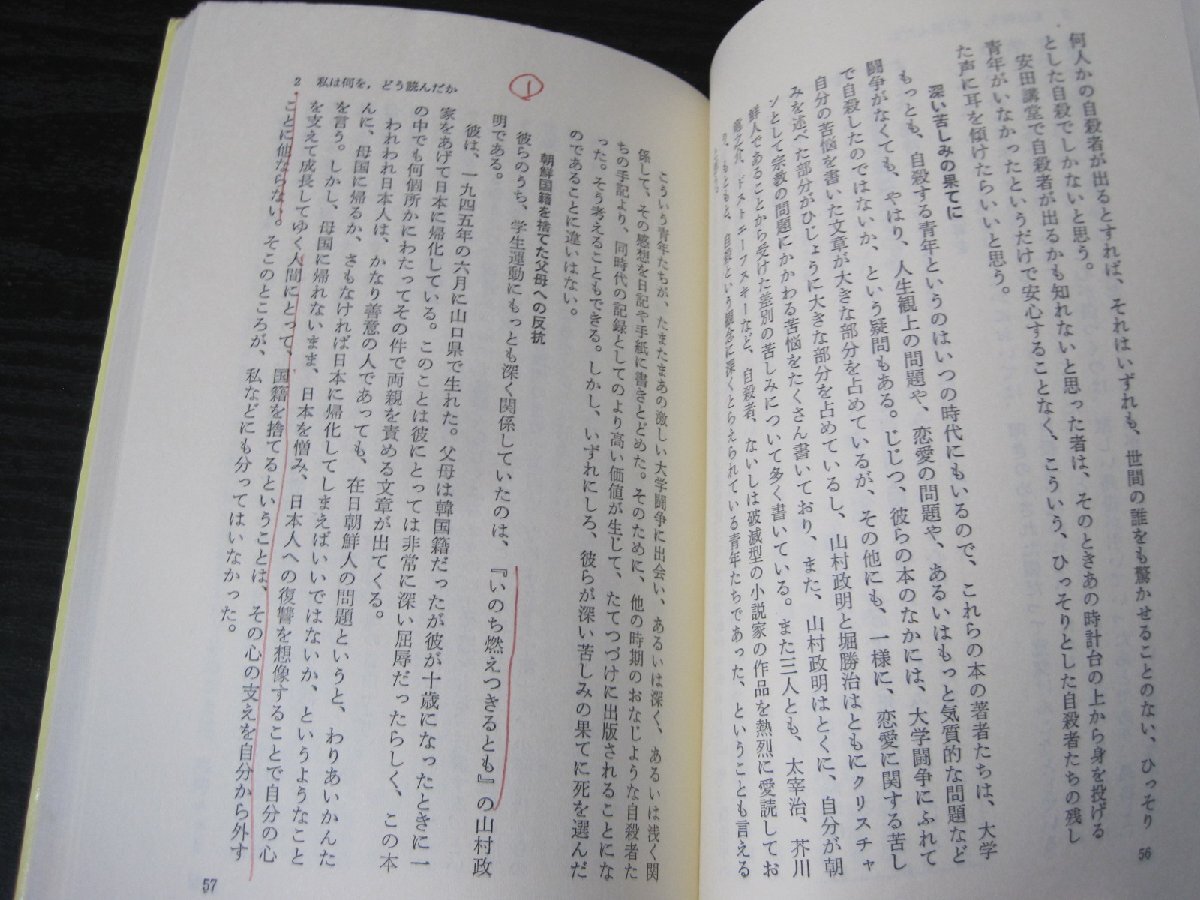 何人かの自殺者が出るとすれば、それはいずれも、世間の誰をも驚かせることのない、ひっそり
とした自殺でしかないと思う。
安田講堂で自殺者が出るかも知れないと思った者は、そのときあの時計台の上から身を投げる
青年がいなかったというだけで安心することなく、こういう、ひっそりとした自殺者たちの残し
た声に耳を傾けたらいいと思う。
深い苦しみの果てに
もっとも、自殺する青年というのはいつの時代にもいるので、これらの本の著者たちは、大学
闘争がなくても、やはり、人生観上の問題や、恋愛の問題や、あるいはもっと気質的な問題など
で自殺したのではないか、という疑問もある。じじつ、彼らの本のなかには、大学闘争にふれて
自分の苦悩を書いた文章が大きな部分を占めているが、その他にも、一様に、恋愛に関する苦し
みを述べた部分がひじょうに大きな部分を占めているし、山村政明と堀勝治はともにクリスチャ
ンとして宗教の問題にかかわる苦悩をたくさん書いており、また、山村政明はとくに、自分が朝
鮮人であることから受けた差別の苦しみについて多く書いている。また三人とも、太宰治、芥川
龍之介、ドストエーフスキーなど、自殺者、ないしは破滅型の小説家の作品を熱烈に愛読してお
り、もともと、自殺という観念に深くとらえられている青年たちであった、ということも言える
56
こういう青年たちが、たまたまあの激しい大学闘争に出会い、あるいは深く、あるいは浅く関
係して、その感想を日記や手紙に書きとどめた。そのために、他の時期のおなじような自殺者た
ちの手記より、同時代の記録としてのより高い価値が生じて、たてつづけに出版されることにな
った。そう考えることもできる。しかし、いずれにしろ、彼らが深い苦しみの果てに死を選んだ
のであることに違いはない。
朝鮮国籍を捨てた父母への反抗
彼らのうち、学生運動にもっとも深く関係していたのは、『いのち燃えつきるとも』の山村政
明である。
彼は、一九四五年の六月に山口県で生れた。父母は韓国籍だったが彼が十歳になったときに一
家をあげて日本に帰化している。このことは彼にとっては非常に深い屈辱だったらしく、この本
の中でも何個所かにわたってその件で両親を責める文章が出てくる。
われわれ日本人は、かなり善意の人であっても、在日朝鮮人の問題というと、わりあいかんた
んに、母国に帰るか、さもなければ日本に帰化してしまえばいいではないか、というようなこと
を言う。しかし、母国に帰れないまま、日本を憎み、日本人への復讐を想像することで自分の心
を支えて成長してゆく人間にとって、国籍を捨てるということは、その心の支えを自分から外す
ことに他ならない。そこのところが、私などにも分ってはいなかった。
2 私は何を，どう読んだか
57
1